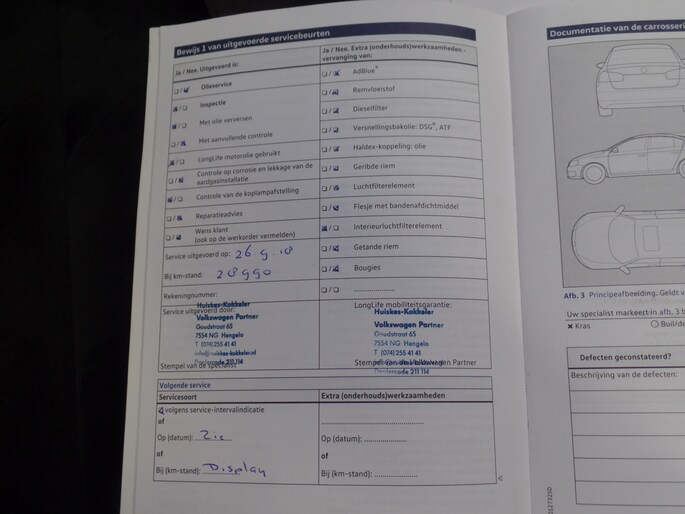 Bewijs 1 van uitgevoerde servicebeurten
Ja / Nee. Uitgevoerd is:
Olieservice
Inspectie
Met olie verversen
Met aanvullende controle
LongLife motorolie gebruikt
Controle op corrosie en lekkage van de
aardgasinstallatie
Controle van de koplampafstelling
Reparatieadvies
Wens klant
(ook op de werkorder vermelden)
Service uitgevoerd op: 26.9.18
Bij km-stand: 28990
Rekeningnummer:
Service uitgevoerd door:
Huiskes-Kokkeler
Volkswagen Partner
Goudstraat 65
7554 NG Hengelo
T (074) 255 41 41
info@huiskes-kokkeler.nl
Dealercode 211 114
Stempel van de specialist
Ja / Nee. Extra (onderhouds)werkzaamheden -
vervanging van:
AdBlue®
Remvloeistof
Dieselfilter
Versnellingsbakolie: DSG®, ATF
Haldex-koppeling: olie
Geribde riem
Luchtfilterelement
Flesje met bandenafdichtmiddel
Interieurluchtfilterelement
Getande riem
Bougies
LongLife mobiliteitsgarantie:
Huiskes-Kokkeler
Volkswagen Partner
Goudstraat 65
7554 NG Hengelo
T (074) 255 41 41
Dealercode 211 114
Stempel van de Volkswagen Partner
Volgende service
Servicesoort
volgens service-intervalindicatie
of
Op (datum): Zie
of
Bij (km-stand): Display
Extra (onderhouds)werkzaamheden
Op (datum):
of
Bij (km-stand):
Documentatie van de carrosseri
Afb. 3 Principeafbeelding. Geldt v
Uw specialist markeert in afb. 3 b
Kras
Buil/de
Defecten geconstateerd?
Beschrijving van de defecten: